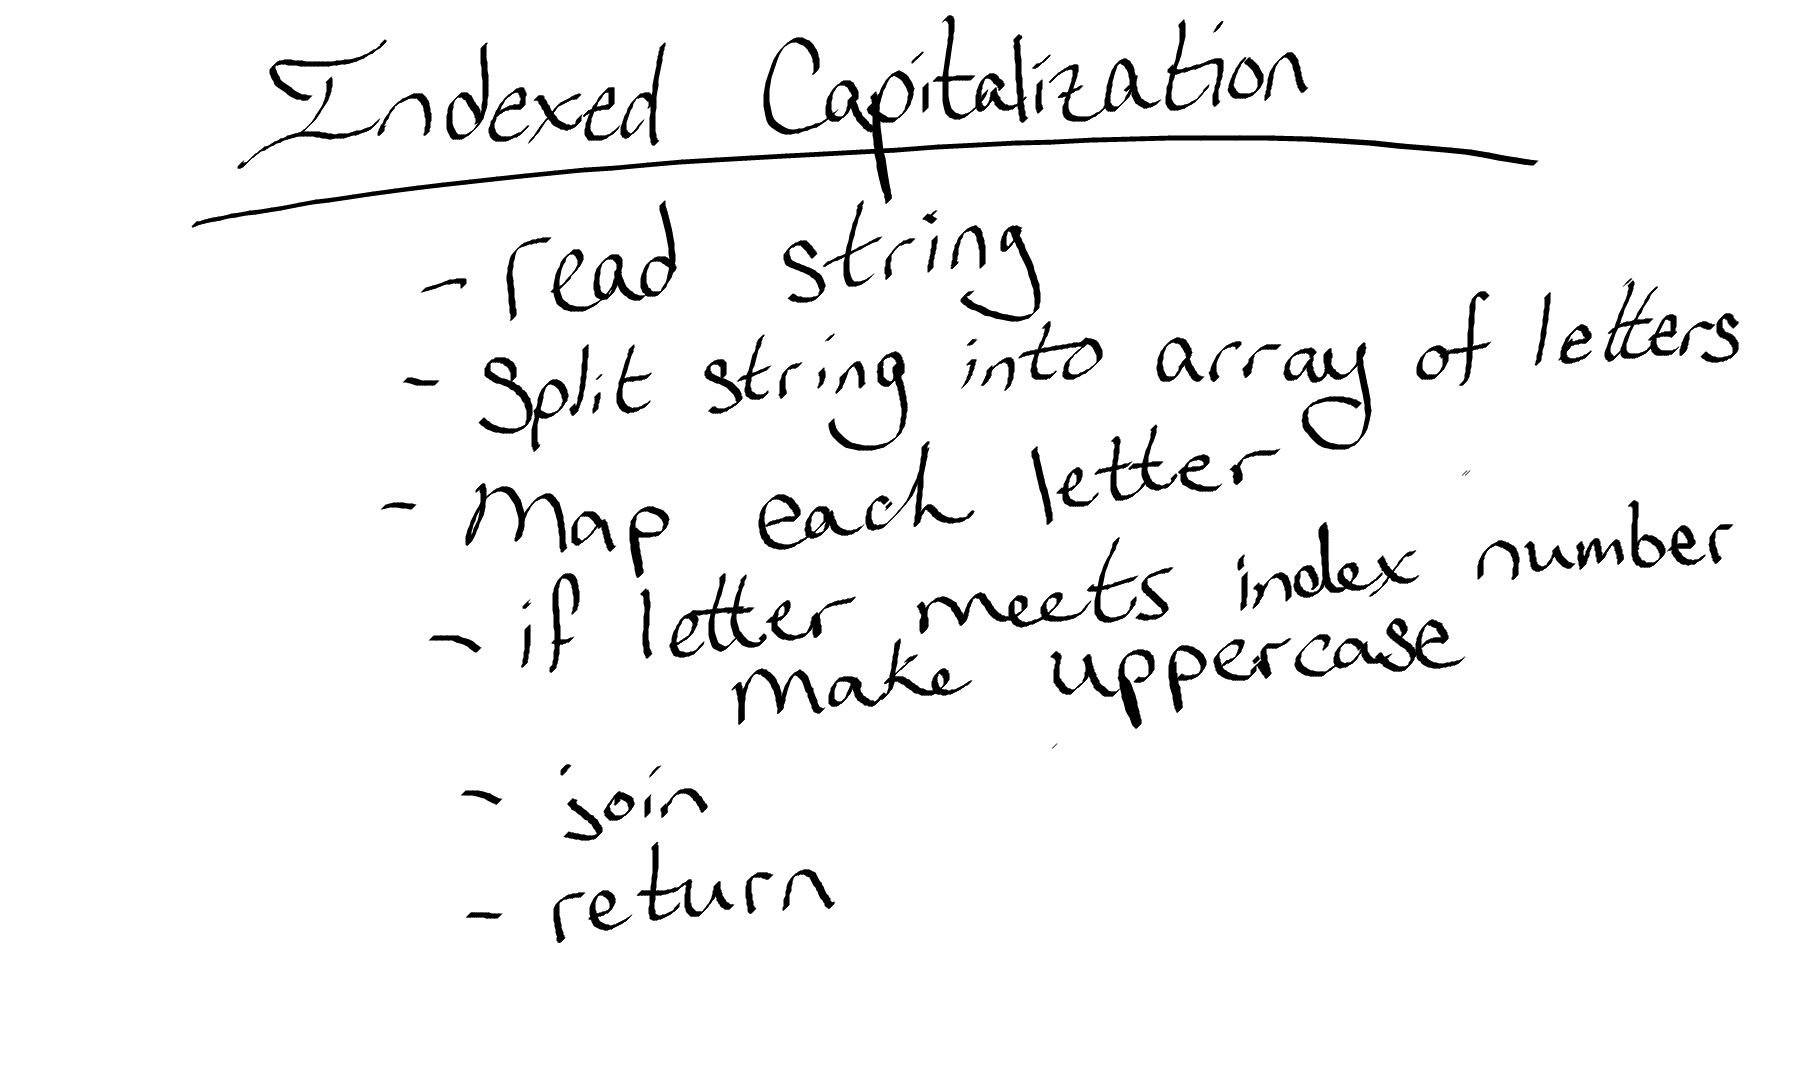 Indexed Capitalization
- read string
- Split string into array of letters
- Map each letter
- if letter meets index number
make uppercase
- join
- return